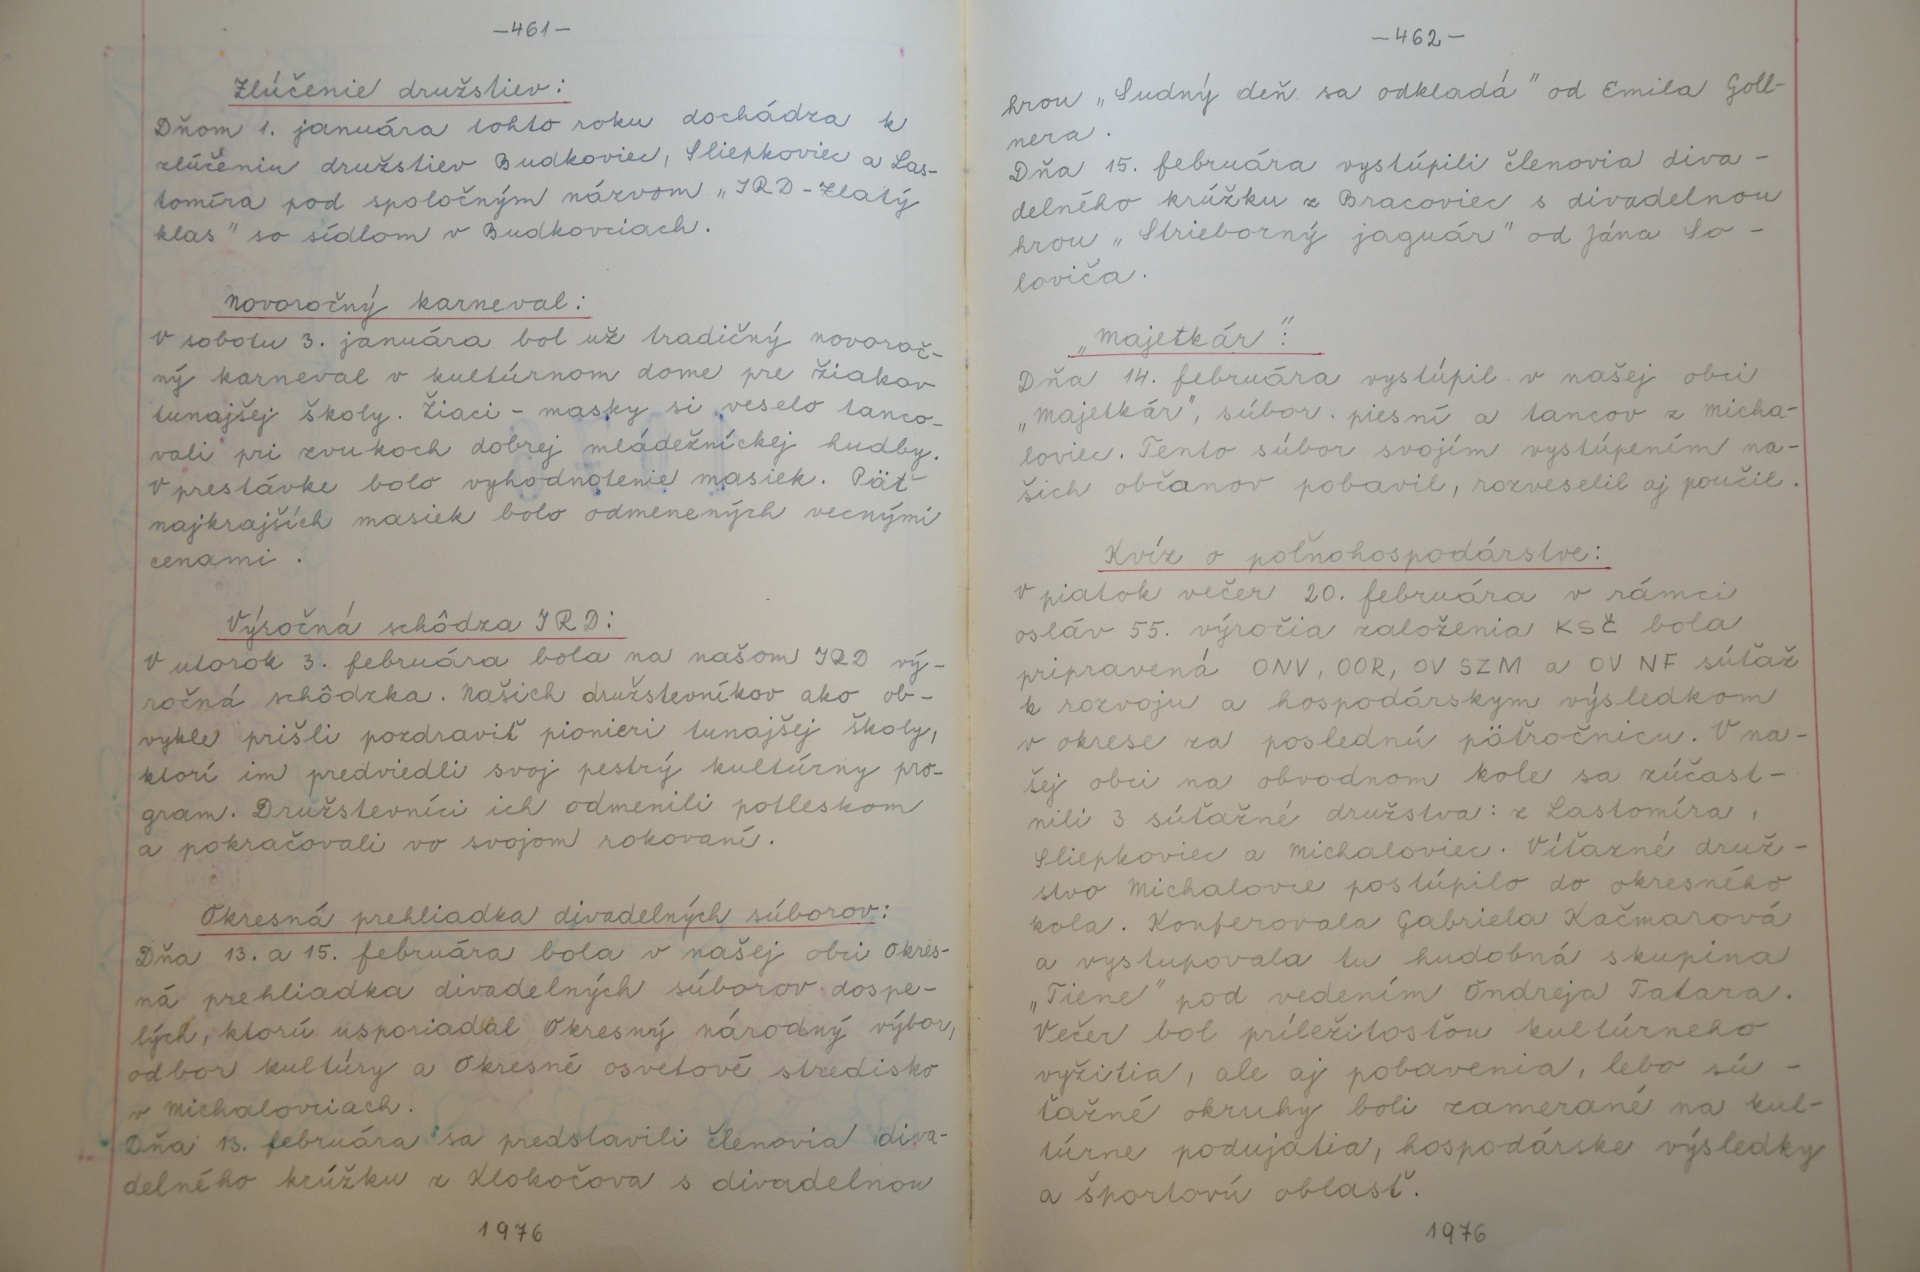 -461-
Zlúčenie družstiev:
Dňom 1. januára tohto roku dochádza k
zlúčeniu družstiev Budkoviec, Sliepkoviec a Las-
tomíra pod spoločným názvom "JRD-Zlatý
klas" so sídlom v Budkovciach.
Novoročný karneval:
V sobotu 3. januára bol už tradičný novoroč-
ný karneval v kultúrnom dome pre žiakov
tunajšej školy. Žiaci - masky si veselo tanco-
vali pri zvukoch dobrej mládežníckej hudby.
V prestávke bolo vyhodnotenie masiek. Päť
najkrajších masiek bolo odmenených vecnými
cenami.
Výročná schôdza JRD:
V utorok 3. februára bola na našom JRD vý-
ročná schôdzka. Našich družstevníkov ako ob-
vykle prišli pozdraviť pionieri tunajšej školy,
ktorí im predviedli svoj pestrý kultúrny pro-
gram. Družstevníci ich odmenili potleskom
a pokračovali vo svojom rokovaní.
Okresná prehliadka divadelných súborov:
Dňa 13. a 15. februára bola v našej obci Okres-
ná prehliadka divadelných súborov dospe-
lých, ktorú usporiadal Okresný národný výbor,
odbor kultúry a Okresné osvetové stredisko
v Michalovciach.
Dňa 13. februára sa predstavili členovia diva-
delného krúžku z Klokočova s divadelnou
1976
-462-
hrou "Sudný deň sa odkladá" od Emila Goll-
nera.
Dňa 15. februára vystúpili členovia diva-
delného krúžku z Bracoviec s divadelnou
hrou "Strieborný jaguár" od Jána So-
loviča.
"Majetkár":
Dňa 14. februára vystúpil v našej obci
"Majetkár", súbor piesní a tancov z Micha-
loviec. Tento súbor svojím vystúpením na-
šich občanov pobavil, rozveselil aj poučil.
Kvíz o poľnohospodárstve:
V piatok večer 20. februára v rámci
osláv 55. výročia založenia KSČ bola
pripravená ONV, OOR, OV SZM a OV NF súťaž
k rozvoju a hospodárskym výsledkom
v okrese za poslednú päťročnicu. V na-
šej obci na obvodnom kole sa zúčast-
nili 3 súťažné družstva: z Lastomíra,
Sliepkoviec a Michaloviec. Víťazné druž-
stvo Michalovce postúpilo do okresného
kola. Konferovala Gabriela Kačmarová
a vystupovala tu hudobná skupina
"Tiene" pod vedením Ondreja Tatara.
Večer bol príležitosťou kultúrneho
vyžitia, ale aj pobavenia, lebo sú-
ťažné okruhy boli zamerané na kul-
túrne podujatia, hospodárske výsledky
a športovú oblasť.
1976